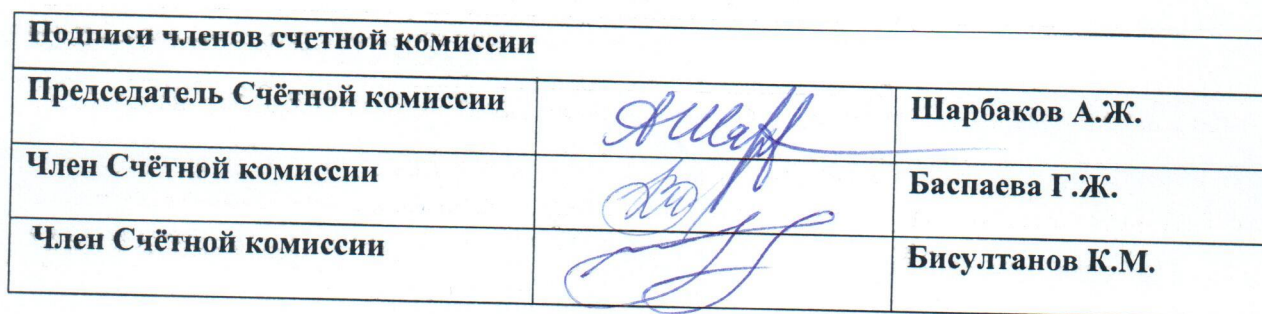 Подписи членов счетной комиссии
Председатель Счётной комиссии Шарбаков А.Ж.
Член Счётной комиссии Баспаева Г.Ж.
Член Счётной комиссии Бисултанов К.М.